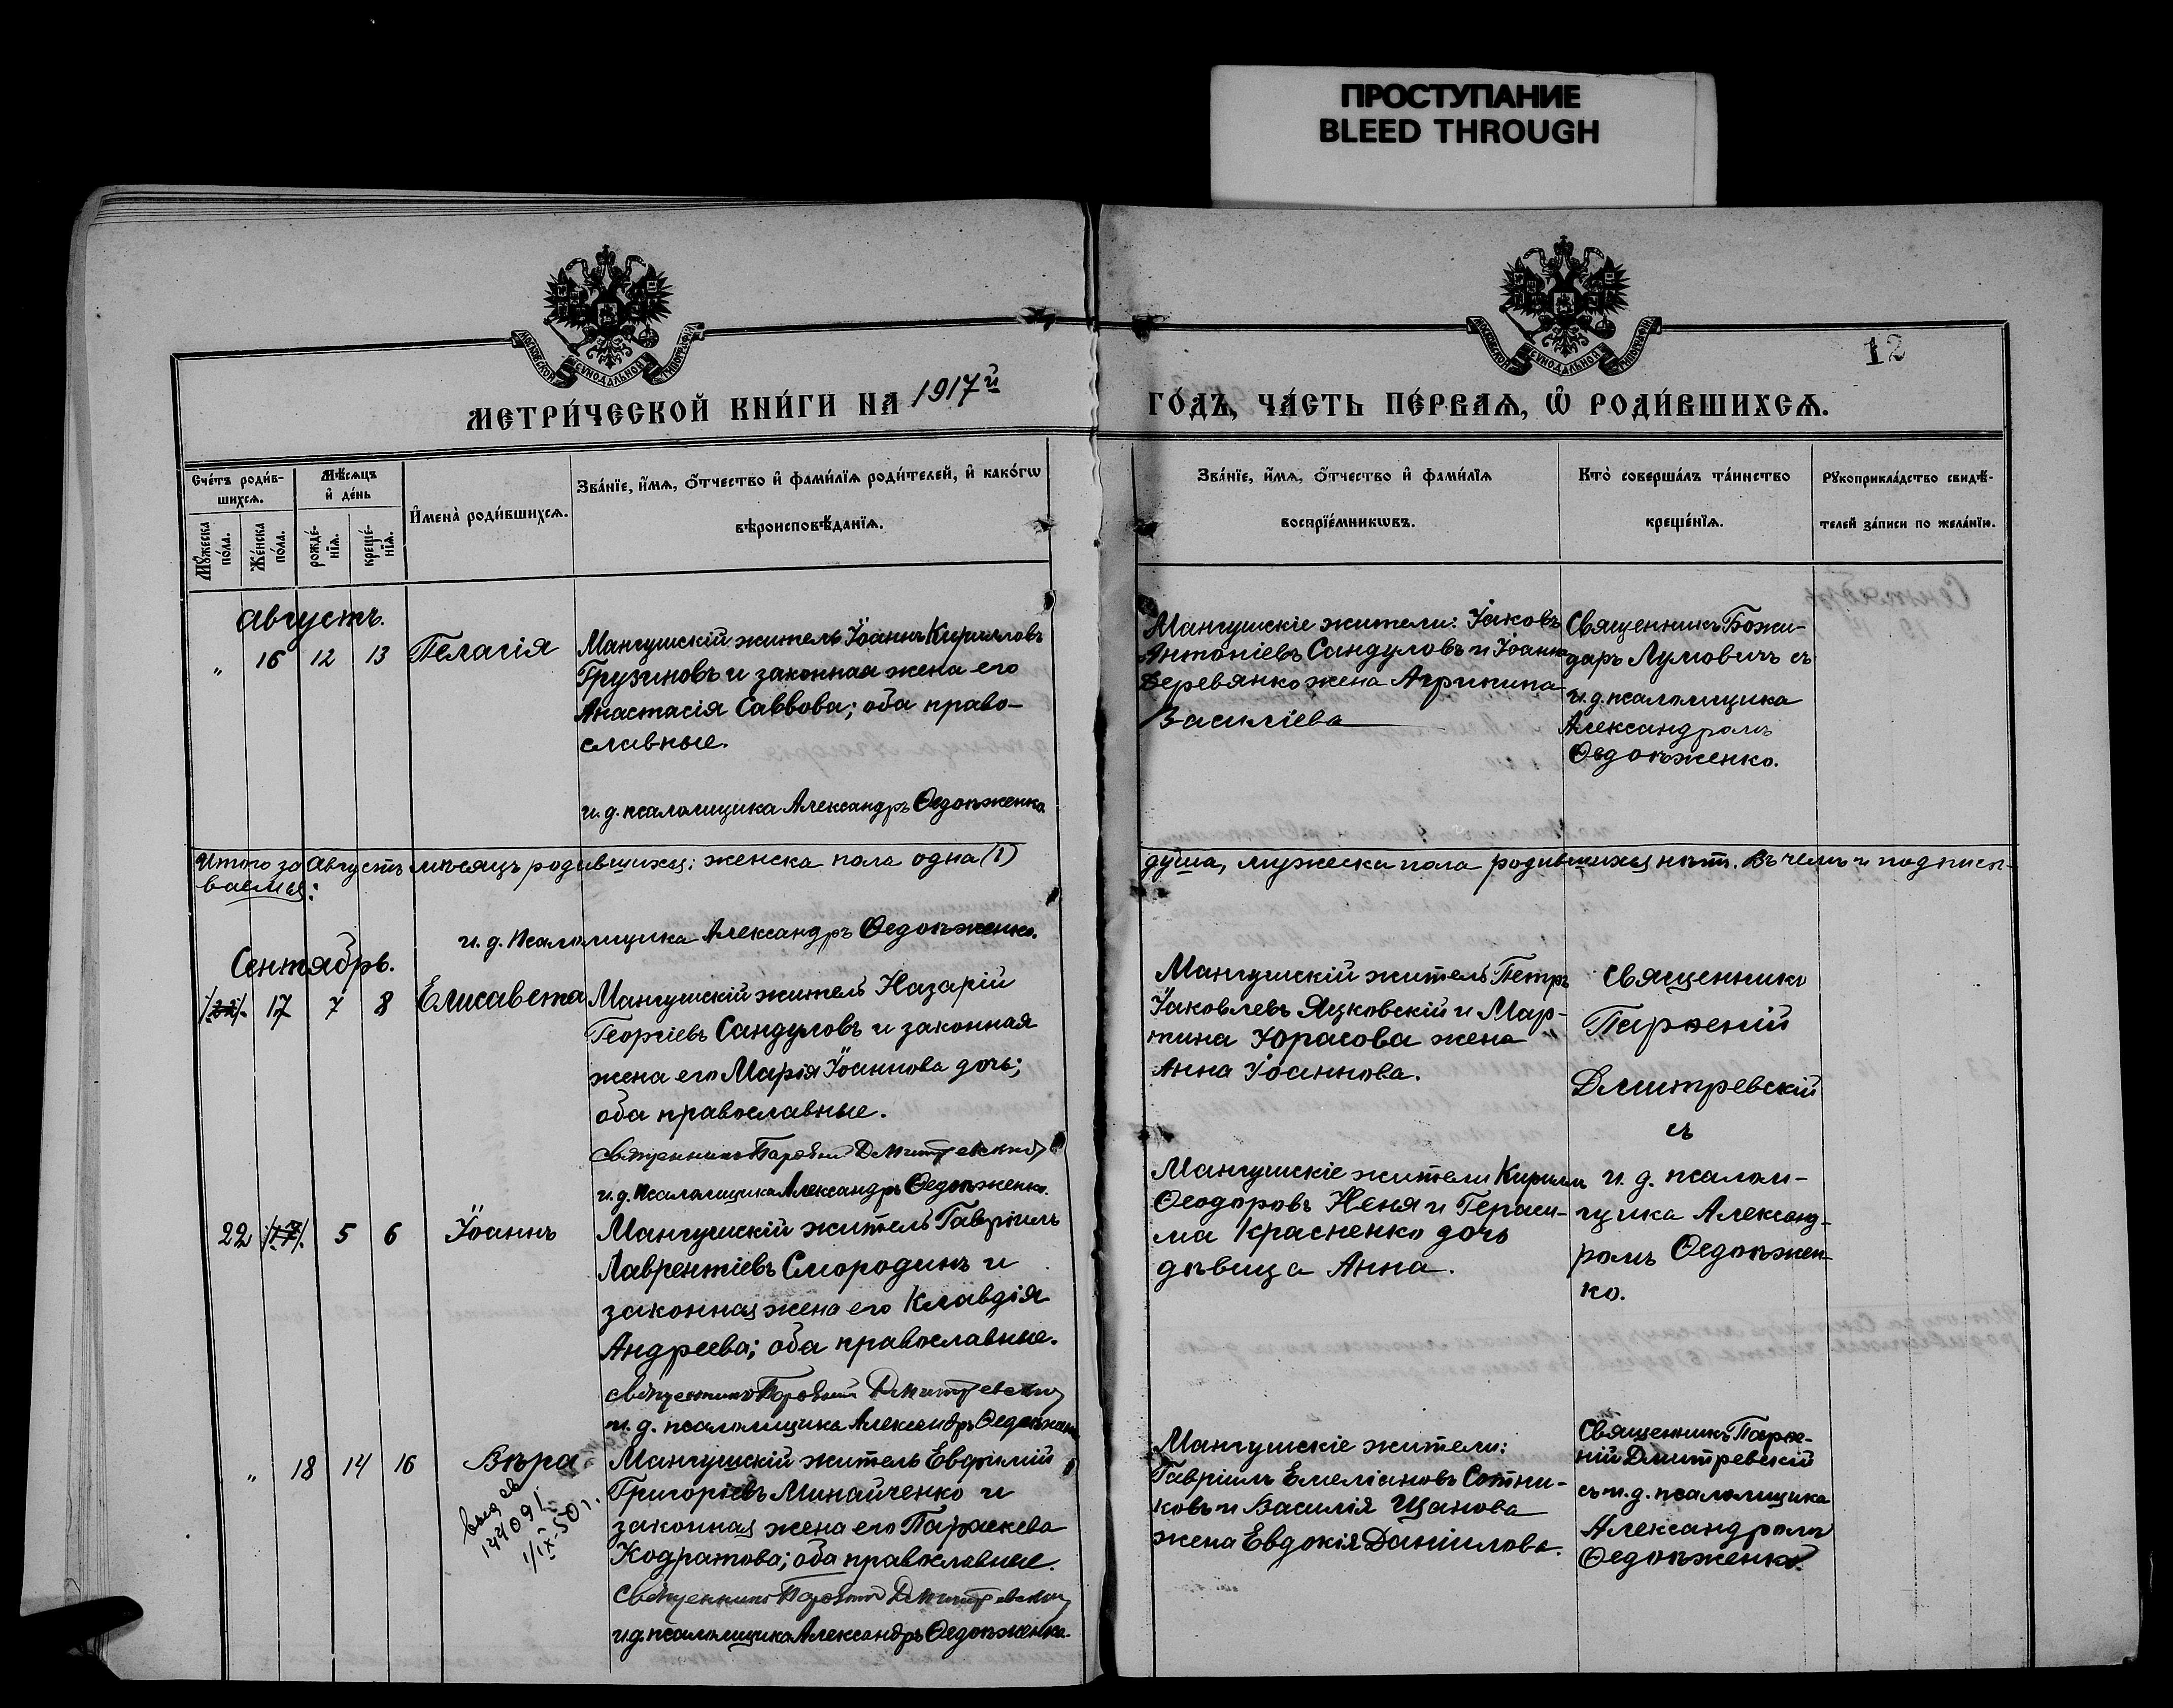 ПРОСТУПАНИЕ
BLEED THROUGH
МОСКОВСКОЙ СѴНОДАЛЬНОЙ ТИПОГРАФІИ
МОСКОВСКОЙ СѴНОДАЛЬНОЙ ТИПОГРАФІИ
12
МЕТРИ́ЧЕСКОЙ КНИ́ГИ НА 1917й
ГО́ДЪ, ЧА́СТЬ ПЕ́РВАѦ, Ѡ҆ РОДИ́ВШИХСѦ.
Сче́тъ роди́в-
шихсѧ.
Мѣ́сѧцъ
и҆ де́нь
И҆мена̀ роди́вшихсѧ.
Зва́нїе, и҆́мѧ, ѻ҆́тчество и҆ фами́лїѧ роди́телей, и҆ како́гѡ
вѣроисповѣ́данїѧ.
Мꙋ́жеска по́ла.
Же́нска по́ла.
рожде́-
нїѧ.
креще́-
нїѧ.
Зва́нїе, и҆́мѧ, ѻ҆́тчество и҆ фами́лїѧ
воспрїе́мникѡвъ.
Кто̀ соверша́лъ та́инство
креще́нїѧ.
Рꙋкоприкла́дство свидѣ́-
телей за́писи по жела́нїю.
Августъ.
" 16 12 13 Пелагія
Мангушскій житель Іоаннъ Кирилловъ
Грузиновъ и законная жена его
Анастасія Саввова; оба право-
славные.
и. д. псаломщика Александръ Ѳедоѣженко
Мангушскіе жители: Іаковъ
Антоніевъ Сандуловъ и Іоанна
Деревянко жена Агрипина
Василіева
Священникъ Божи-
даръ Лумовичъ съ
и. д. псаломщика
Александромъ
Ѳедоѣженко.
Итого за Августъ мѣсяцъ родившихся: женска пола одна (1)
душа, мужеска пола родившихся нѣтъ. Въ чемъ и подписы-
ваемся:
и. д. псаломщика Александръ Ѳедоѣженко.
Сентябрь.
/22/. 17 7 8 Елисавета
Мангушскій житель Назарій
Георгіевъ Сандуловъ и законная
жена его Марія Іоаннова дочь;
оба православные.
Священникъ Парѳеній Дмитревскій
и. д. псаломщика Александръ Ѳедоѣженко.
Мангушскій житель Петръ
Іаковлевъ Яцковскій и Мар-
тина Юрасова жена
Анна Іоаннова.
Священникъ
Парѳеній
Дмитревскій
съ
и. д. псалом-
щика Александ-
ромъ Ѳедоѣжен-
ко.
22 /17/. 5 6 Іоаннъ
Мангушскій житель Гавріилъ
Лаврентіевъ Смородинъ и
законная жена его Клавдія
Андреева; оба православные.
Священникъ Парѳеній Дмитревскій
и. д. псаломщика Александръ Ѳедоѣженко
Мангушскіе жители Кириллъ
Ѳеодоровъ Неня и Гераси-
ма Красненко дочь
дѣвица Анна.
" 18 14 16 Вѣра
1/IX-50 г.
Мангушскій житель Евфимій
Григоріевъ Минайченко и
законная жена его Параскева
Кодратова; оба православные.
Священникъ Парѳеній Дмитревскій
и. д. псаломщика Александръ Ѳедоѣженко.
Мангушскіе жители:
Гавріилъ Емеліановъ Сотни-
ковъ и Василія Цанова
жена Евдокія Даніилова.
Священникъ Парѳе-
ній Дмитревскій
съ и. д. псаломщика
Александромъ
Ѳедоѣженко.